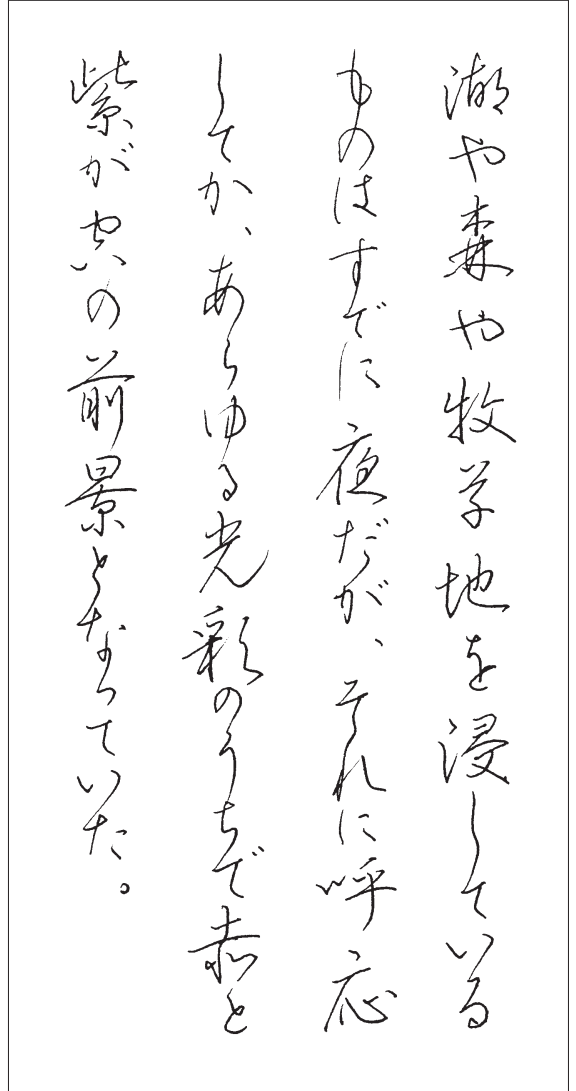 湖や森や牧草地を浸している
ものはすでに夜だが、それに呼応
してか、あらゆる光彩のうちで赤と
紫が空の前景となっていた。